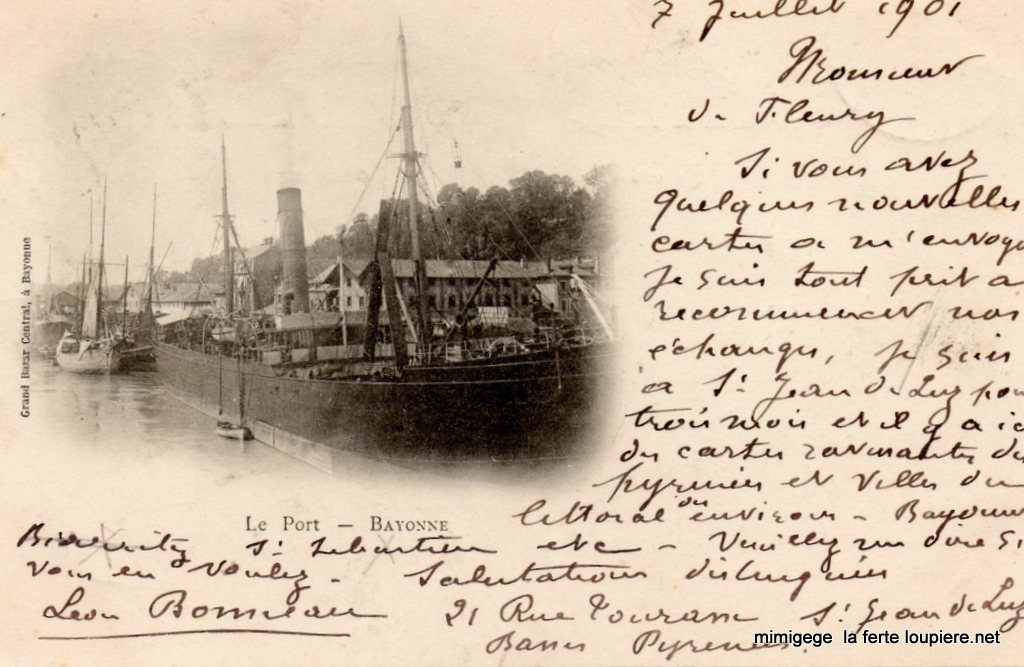 7 Juillet 1901
Monsieur
de Fleury
Si vous avez
quelques nouvelles
cartes a m'envoye
je suis tout prit a
recommencer nos
échanges, je suis
a St Jean de Luz pour
trois mois et il y a ici
des cartes ravissantes des
pyrénées et villes du
littoral des environs - Bayonne
Biarritz St Sebastien etc - Veuillez me dire si
vous en voulez - Salutations distinguées
Léon Bonneau 21 Rue St Jean de Luz
Basses Pyrenees.
Le Port - BAYONNE
Grand Bazar Central, à Bayonne
mimigege la ferte loupiere.net